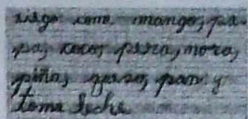 como mango, pa-
pa, coco, pera, mora,
piña, queso, pan y
tomo leche